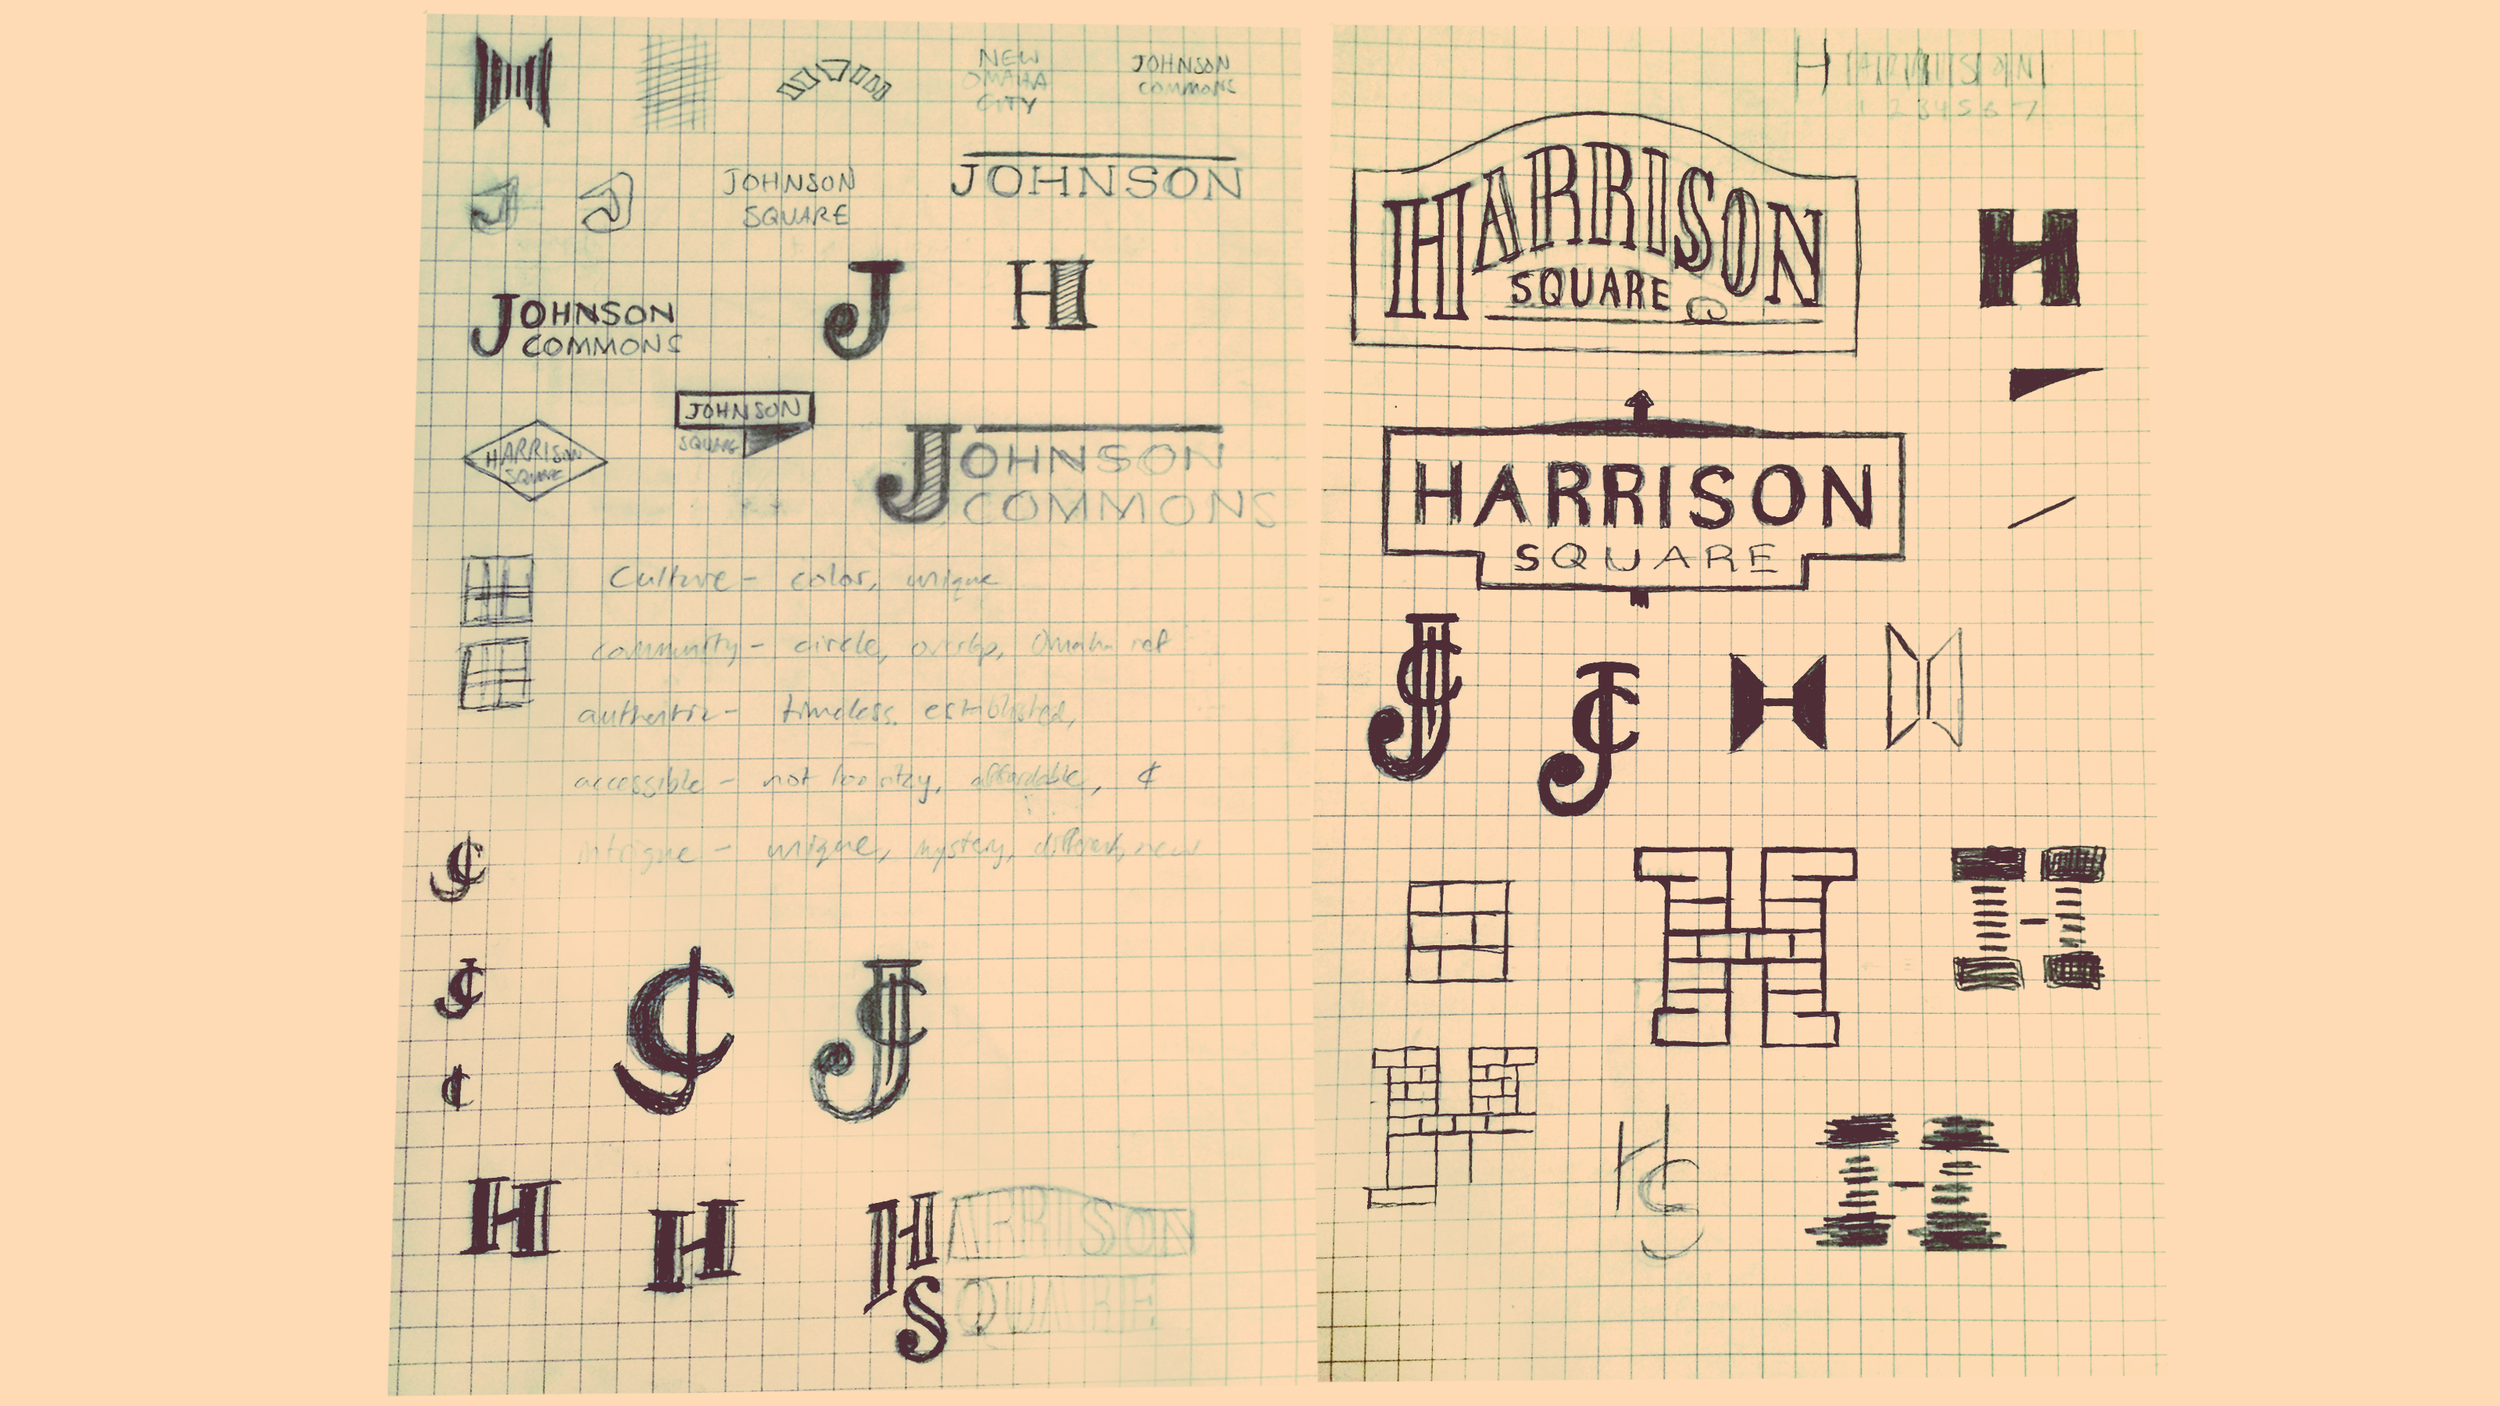 NEW
OMAHA
CITY
JOHNSON
COMMONS
J
JOHNSON
SQUARE
JOHNSON
JOHNSON
COMMONS
J
H
HARRISON
SQUARE
JOHNSON
SQUARE
JOHNSON
COMMONS
Culture - color, unique
community - circle, overlap, Omaha ref
authentic - timeless, established,
accessible - not too ritzy, affordable, ¢
intrigue - unique, mystery, different, new
JC
JC
¢
JC
JC
H
H
HARRISON
SQUARE
HARRISON
1 2 3 4 5 6 7
HARRISON
SQUARE
H
HARRISON
SQUARE
JC
JC
H
H
H
H
H
HS
H